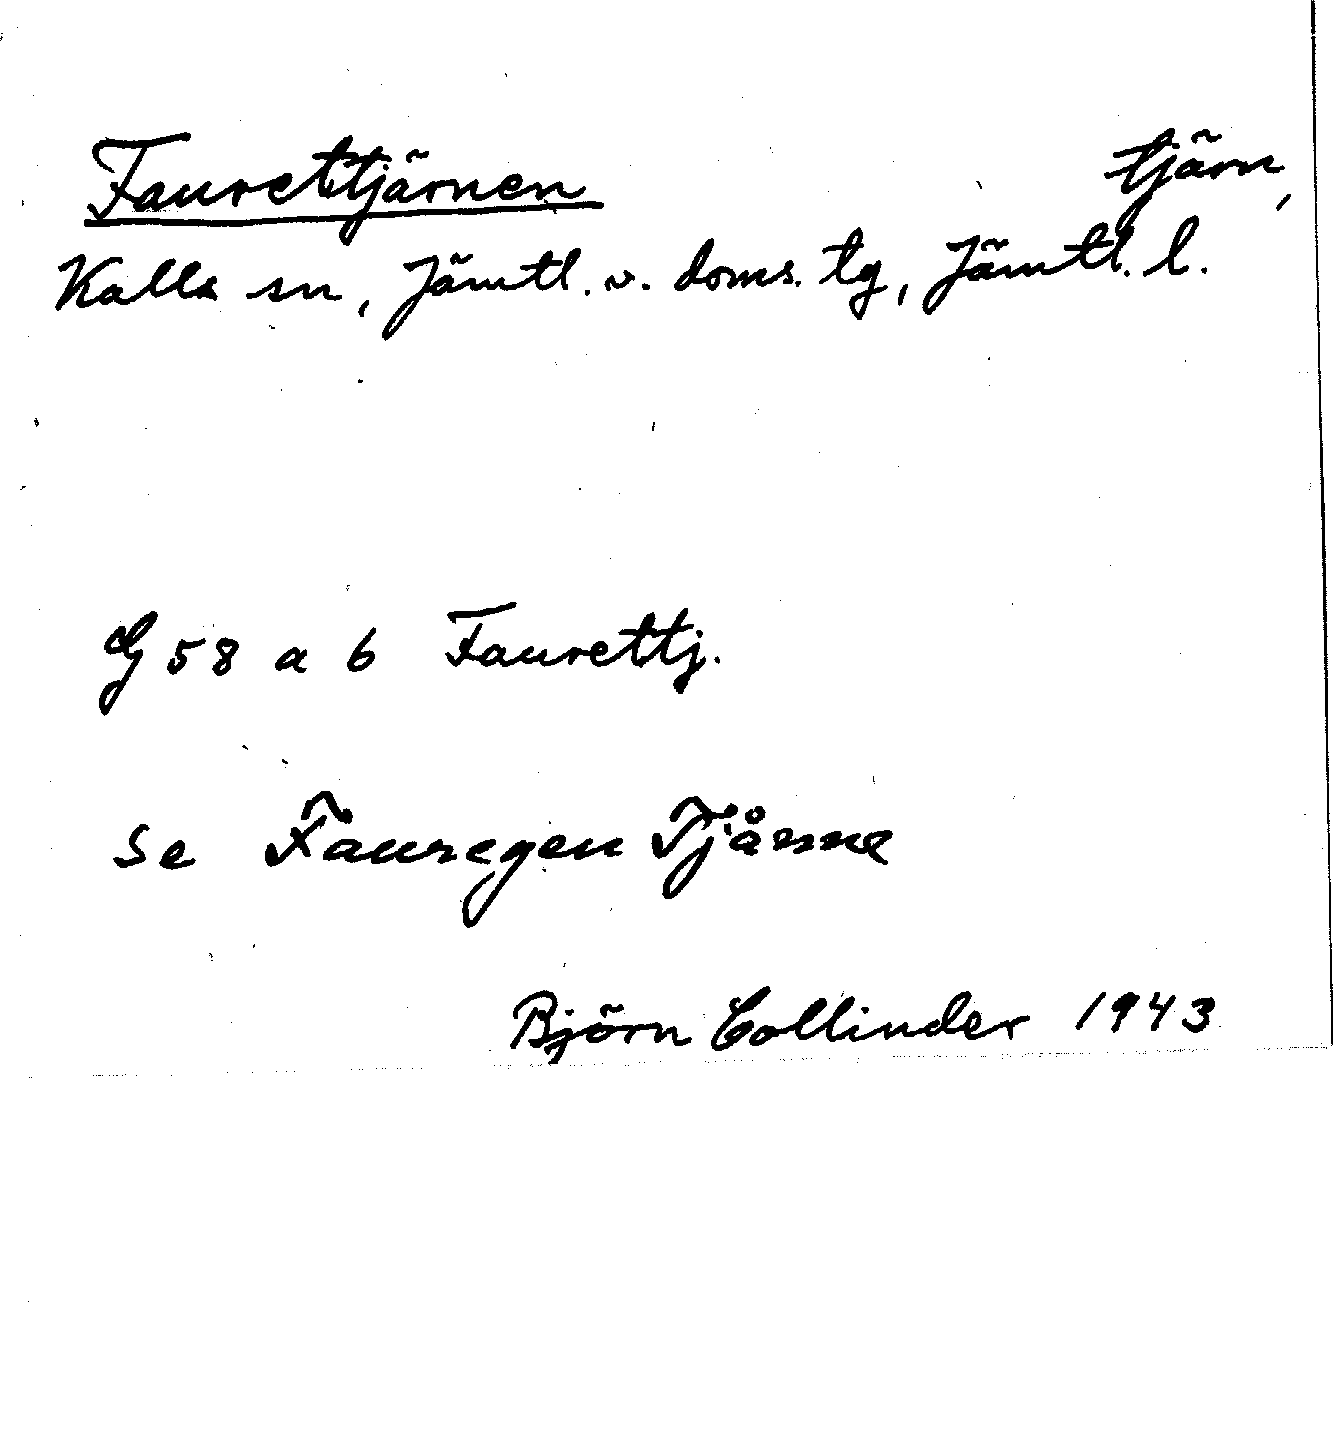 Faurettjärnen tjärn,
Kalls sn, Jämtl. v. doms. tg, Jämtl. l.
G 58 a b Faurettj.
se Fauregen TjåRne
Björn Collinder 1943